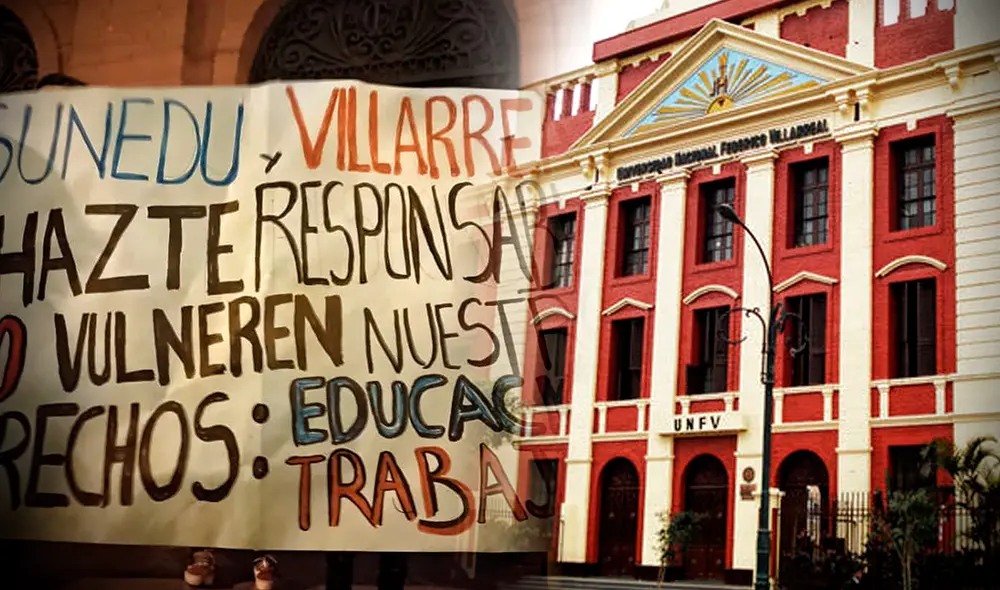 SUNEDU y VILLARRE
HAZTE RESPONSAB
O VULNEREN NUEST
RECHOS: EDUCAC
TRABAJ
UNIVERSIDAD NACIONAL FEDERICO VILLARREAL
UNFV